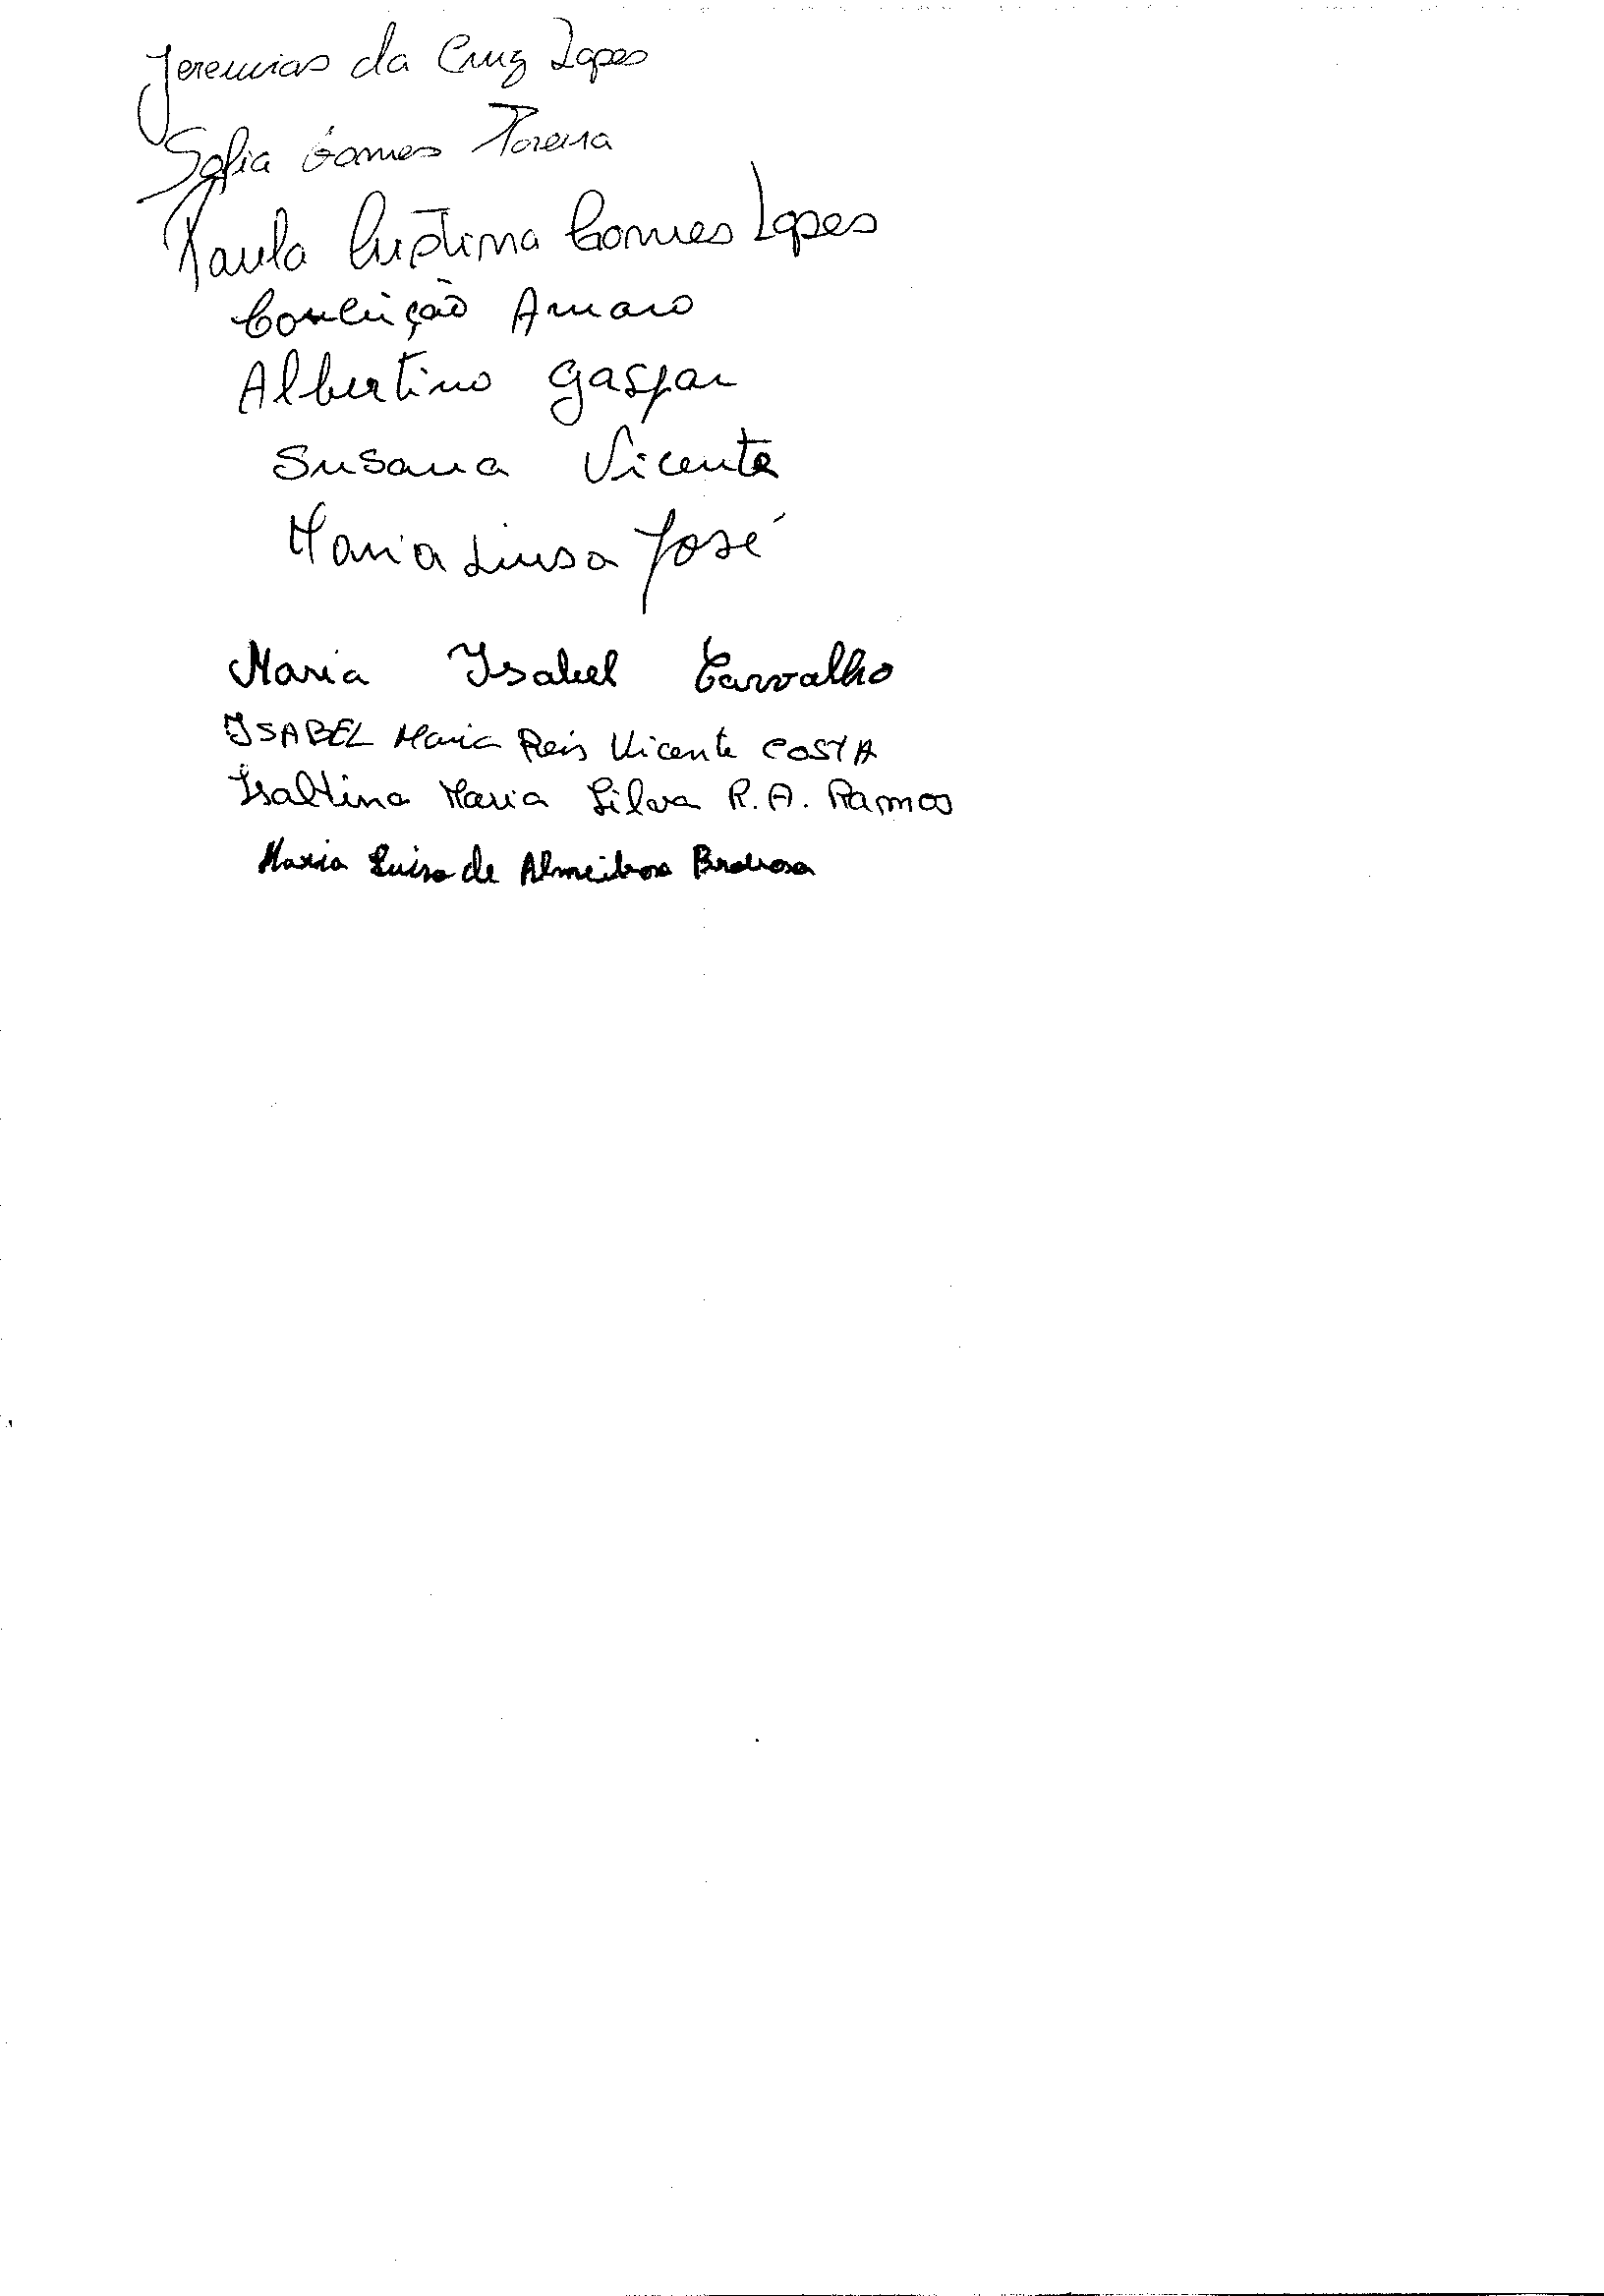 Jeremias da Cruz Lopes
Sofia Gomes
Paula Cristina Gomes Lopes
Conceição Amaro
Albertino Gaspar
Susana Vicente
Maria Luisa José
Maria Isabel Carvalho
ISABEL Maria Reis Vicente COSTA
Isaltina Maria Silva R. A. Ramos
Maria Luisa de Almeida